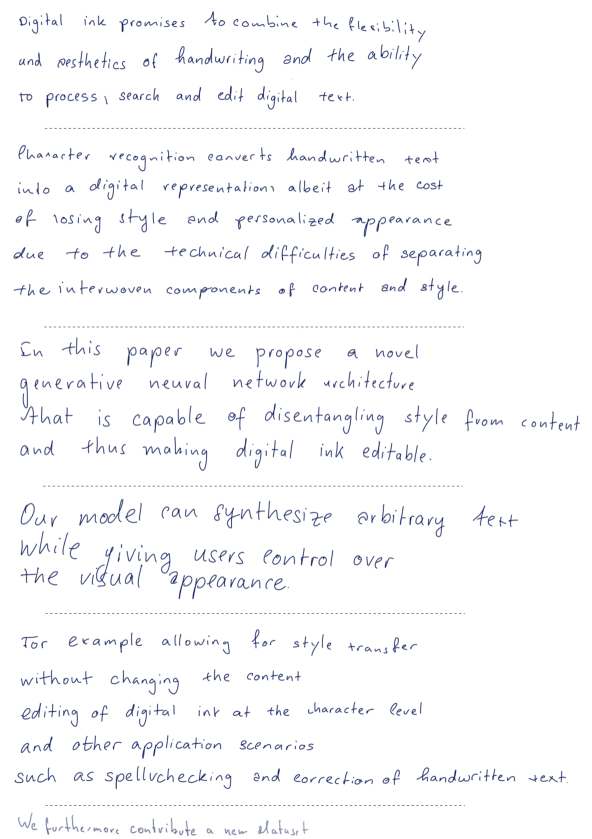 Digital ink promises to combine the flexibility
and aesthetics of handwriting and the ability
to process, search and edit digital text.
Character recognition converts handwritten text
into a digital representation, albeit at the cost
of losing style and personalized appearance
due to the technical difficulties of separating
the interwoven components of content and style.
In this paper we propose a novel
generative neural network architecture
that is capable of disentangling style from content
and thus making digital ink editable.
Our model can synthesize arbitrary text
while giving users control over
the visual appearance.
For example allowing for style transfer
without changing the content
editing of digital ink at the character level
and other application scenarios
such as spellvchecking and correction of handwritten text.
We furthermore contribute a new dataset